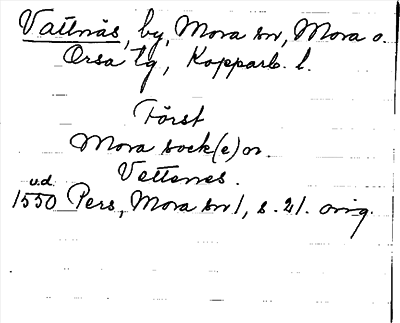 Vattnäs, by, Mora sn, Mora o.
Orsa tg, Kopparb. l.
Först
Mora sock(e)n.
Vettenes.
u.d.
1550 Pers, Mora sn 1, s. 21. orig.